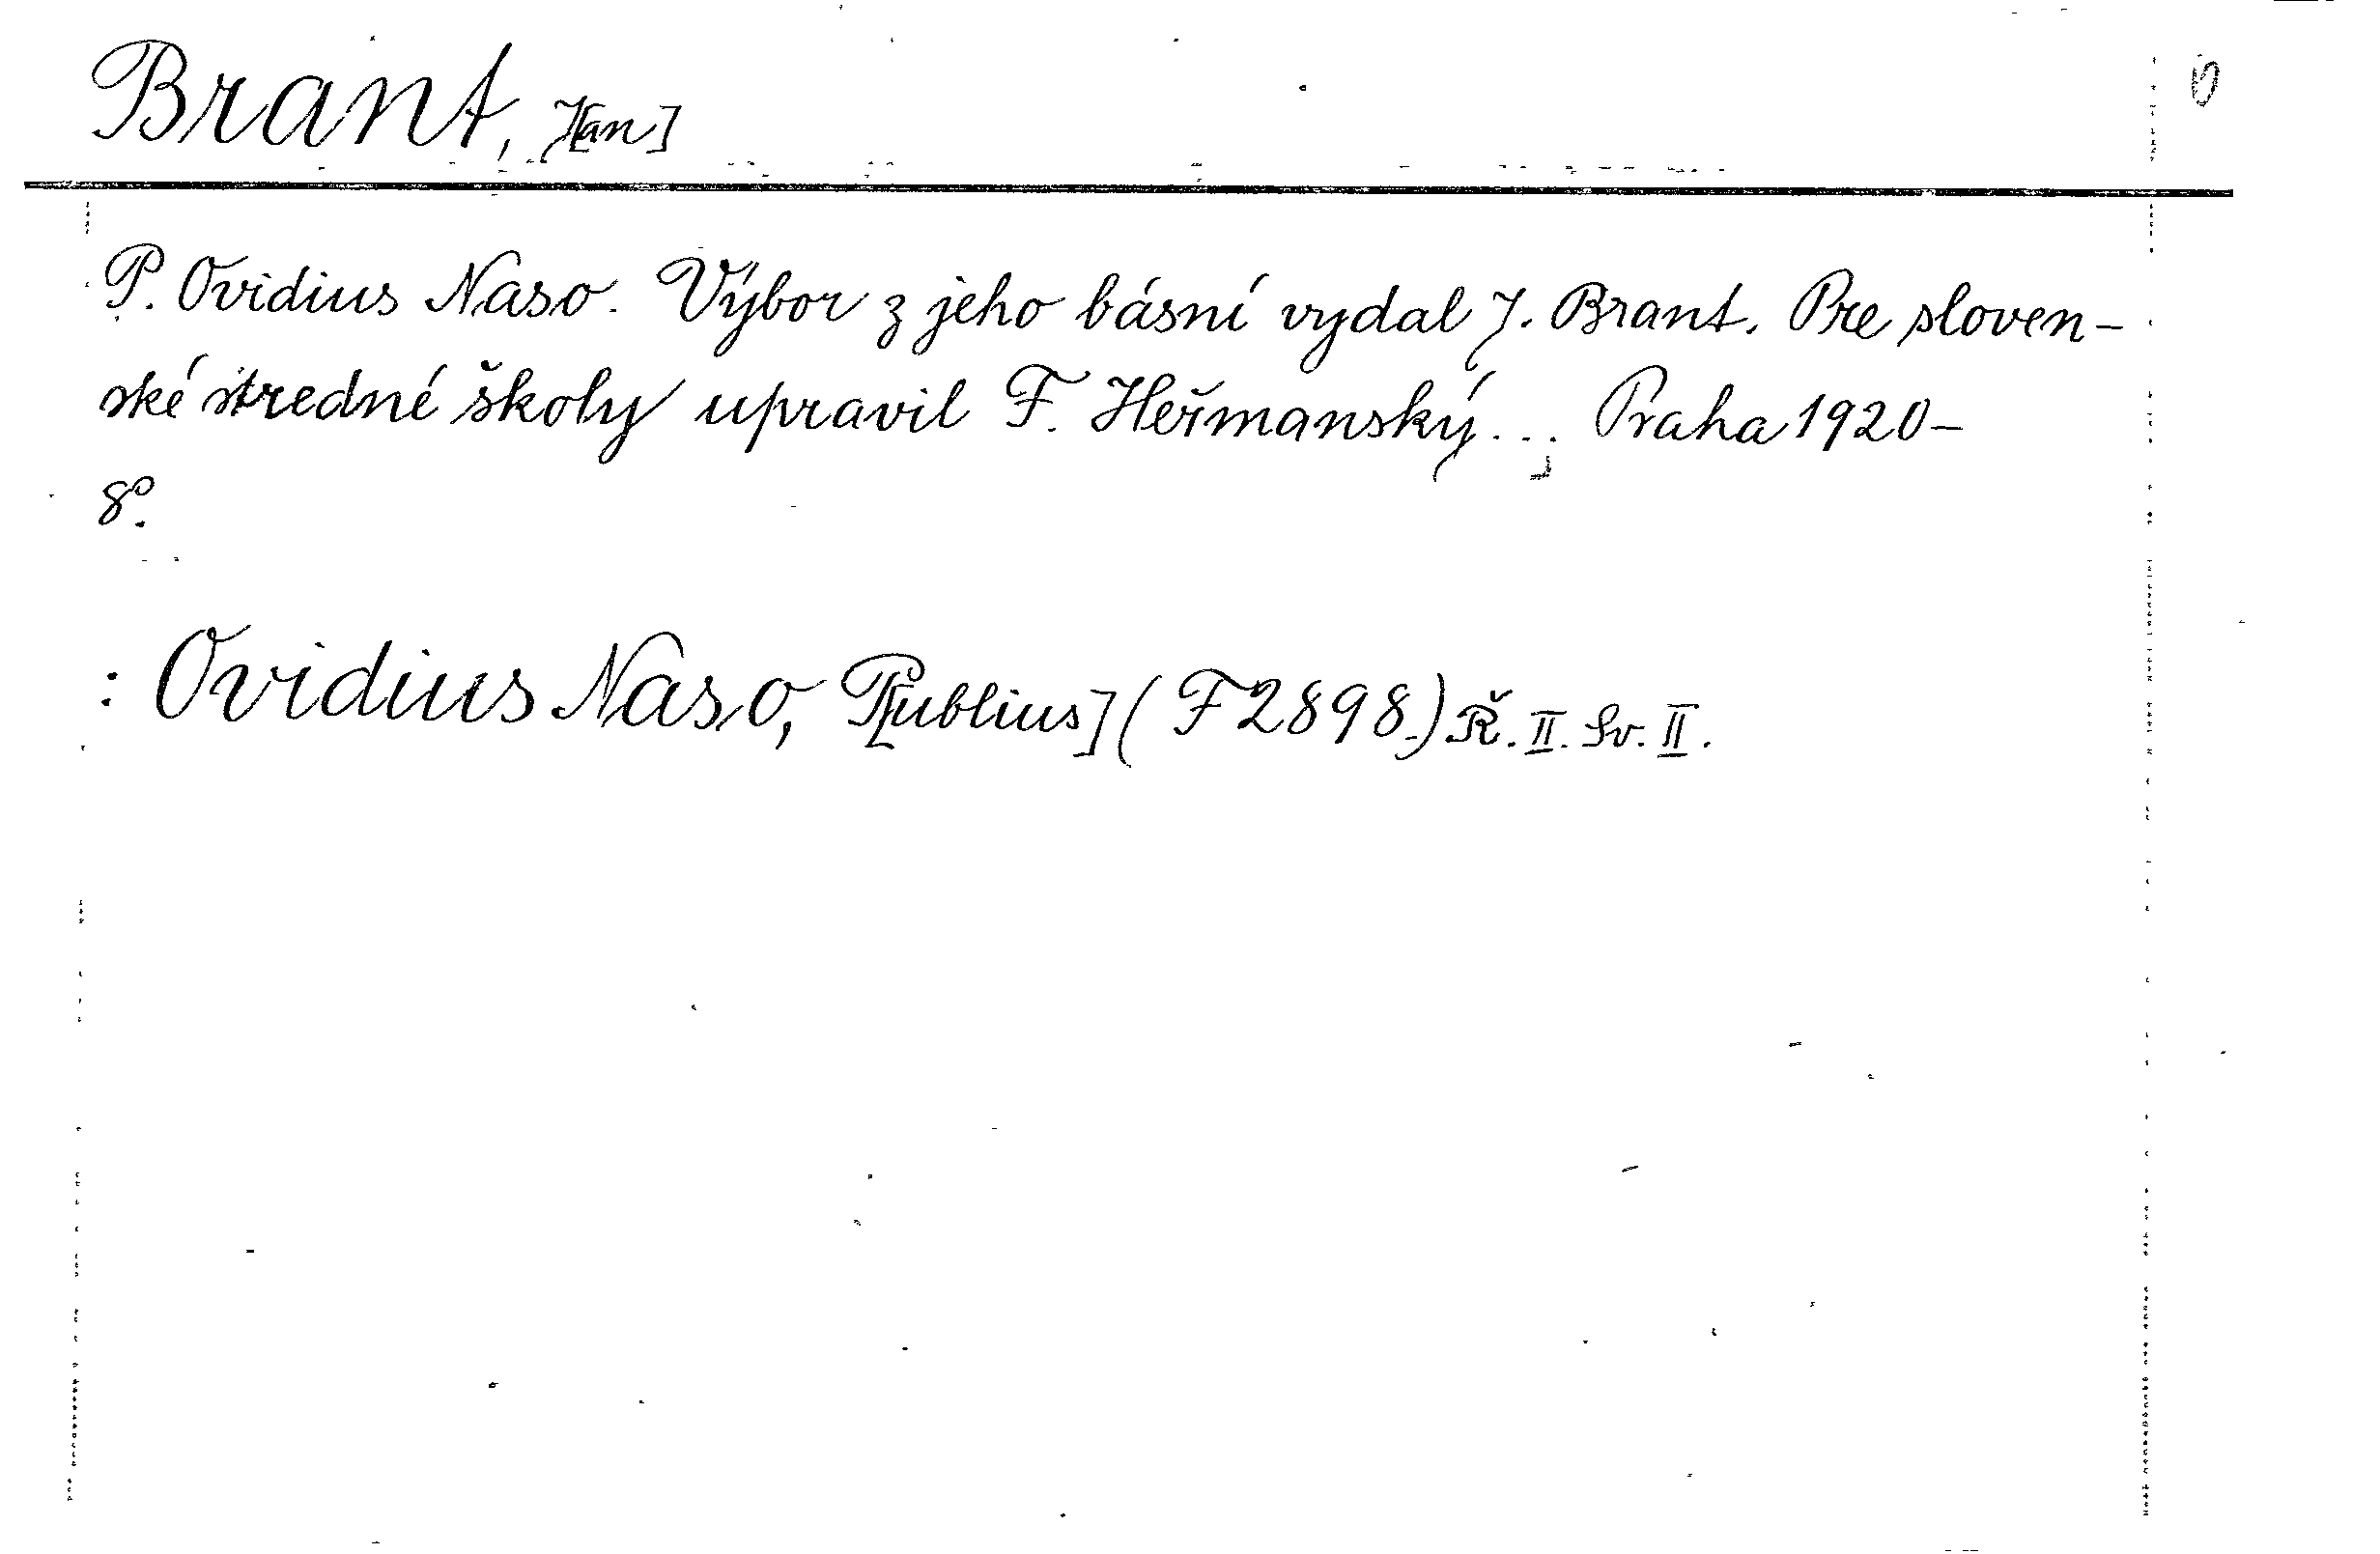 Brant, J[an]
P. Ovidius Naso. Výbor z jeho básní vydal J. Brant. Pre sloven-
ské stredné školy upravil F. Heřmanský... Praha 1920-
8°.
: Ovidius Naso, P[ublius] (F 2898.) Ř. II. Sv. II.